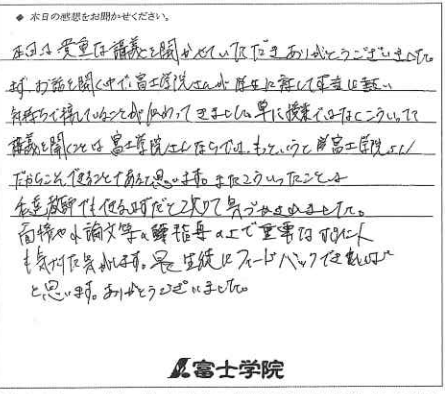 ◆ 本日の感想をお聞かせください。
本日は貴重な講義を聞かせていただきありがとうございました。
まず、お話を聞く中で富士学院さんが学生に対して本当に熱い
気持ちで接していることが伝わってきました。単に授業ではなくこういった
講義を聞くことは富士学院さんならでは、もっというと富士学院さん
だからこそ、できることであると思います。またこういったことは
私達教師でもできるはずだと改めて気づかされました。
面接や小論文等の指導の上で重要なポイント
も気付けた気がします。是非生徒にフィードバックできれば
と思います。ありがとうございました。
富士学院